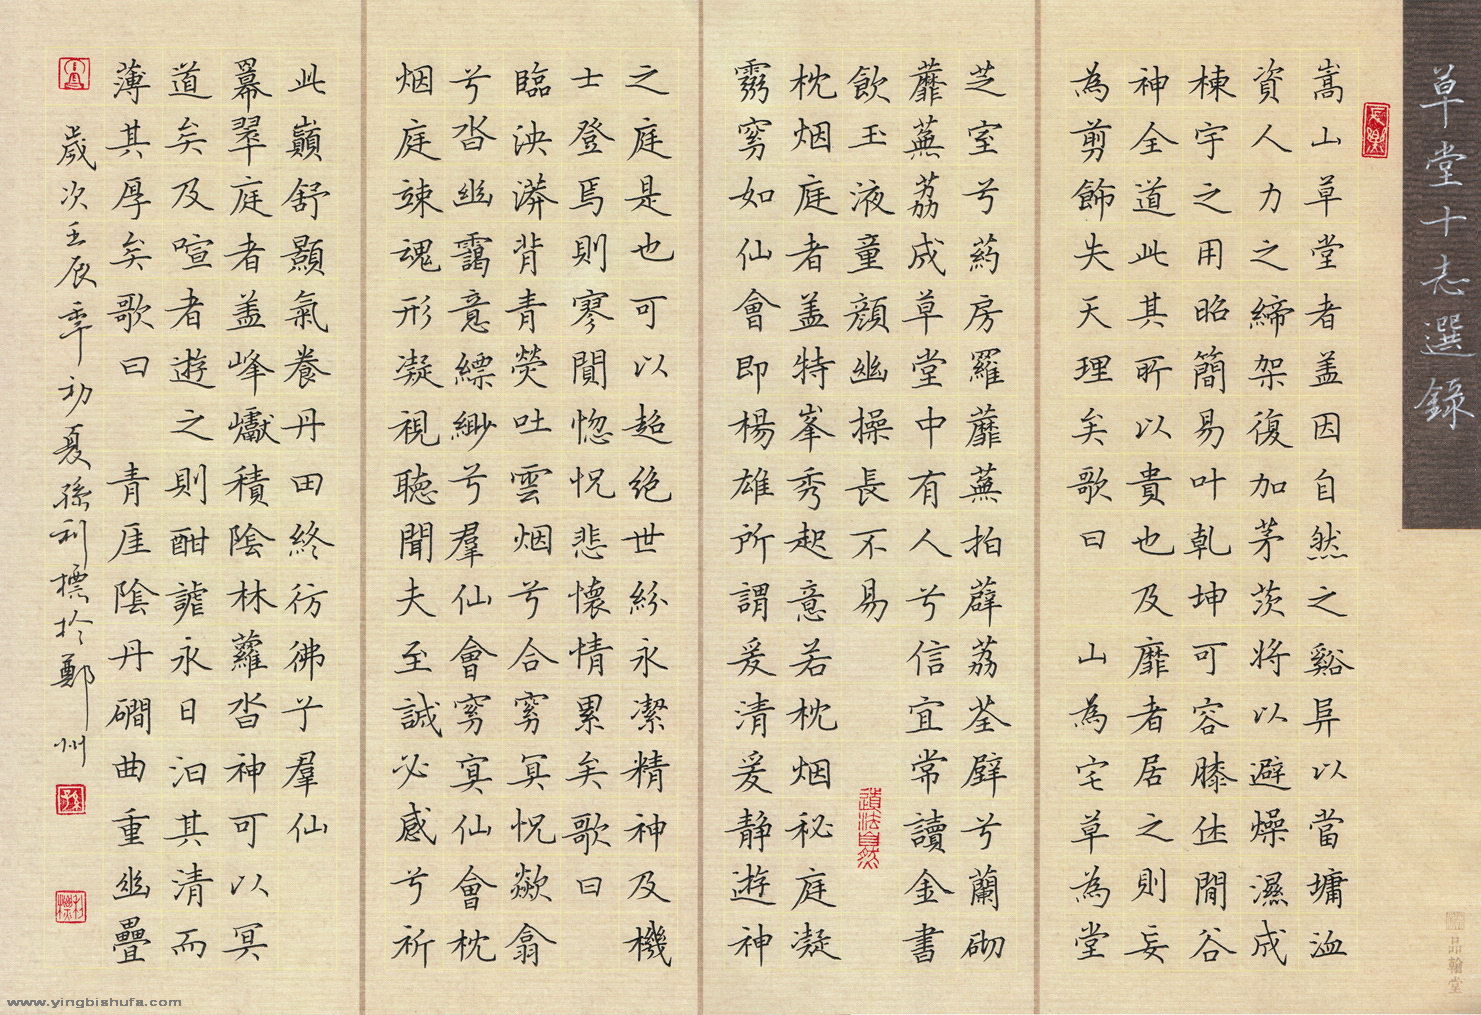 草堂十志選錄
長樂
嵩山草堂者盖因自然之谿异以當墉洫
資人力之締架復加茅茨將以避燥濕成
棟宇之用昭簡易叶乾坤可容膝休閒谷
神全道此其所以貴也及靡者居之則妄
為剪飾失天理矣歌曰 山為宅草為堂
芝室兮葯房羅蘼蕪拍薜荔荃壁兮蘭砌
蘼蕪荔成草堂中有人兮信宜常讀金書
飲玉液童顏幽操長不易
道法自然
枕烟庭者盖特峯秀起意若枕烟秘庭凝
霛窈如仙會即楊雄所謂爰清爰静遊神
之庭是也可以超绝世紛永潔精神及機
士登焉則寥閴惚怳悲懷情累矣歌曰
臨泱漭背青熒吐雲烟兮合窈冥怳歘翕
兮沓幽靄意縹緲兮羣仙會窈冥仙會枕
烟庭竦魂形凝視聴聞夫至誠必感兮祈
此巔舒顥氣養丹田終彷彿亍羣仙
冪翠庭者盖峰巘積陰林蘿沓神可以冥
道矣及喧者遊之則酣謔永日汩其清而
薄其厚矣歌曰 青厓陰丹磵曲重幽疊
歲次壬辰年初夏孫利標於鄭州
品翰堂
www.yingbishufa.com